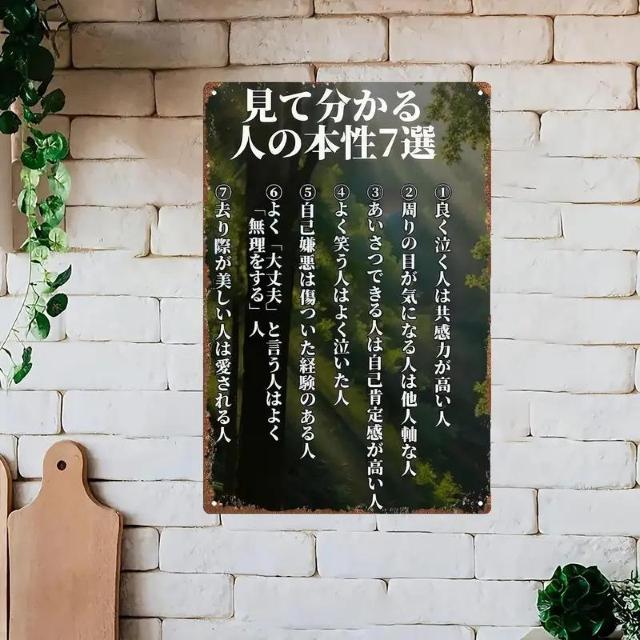 見て分かる
人の本性7選
①良く泣く人は共感力が高い人
②周りの目が気になる人は他人軸な人
③あいさつできる人は自己肯定感が高い人
④よく笑う人はよく泣いた人
⑤自己嫌悪は傷ついた経験のある人
⑥よく「大丈夫」と言う人はよく
「無理をする」人
⑦去り際が美しい人は愛される人